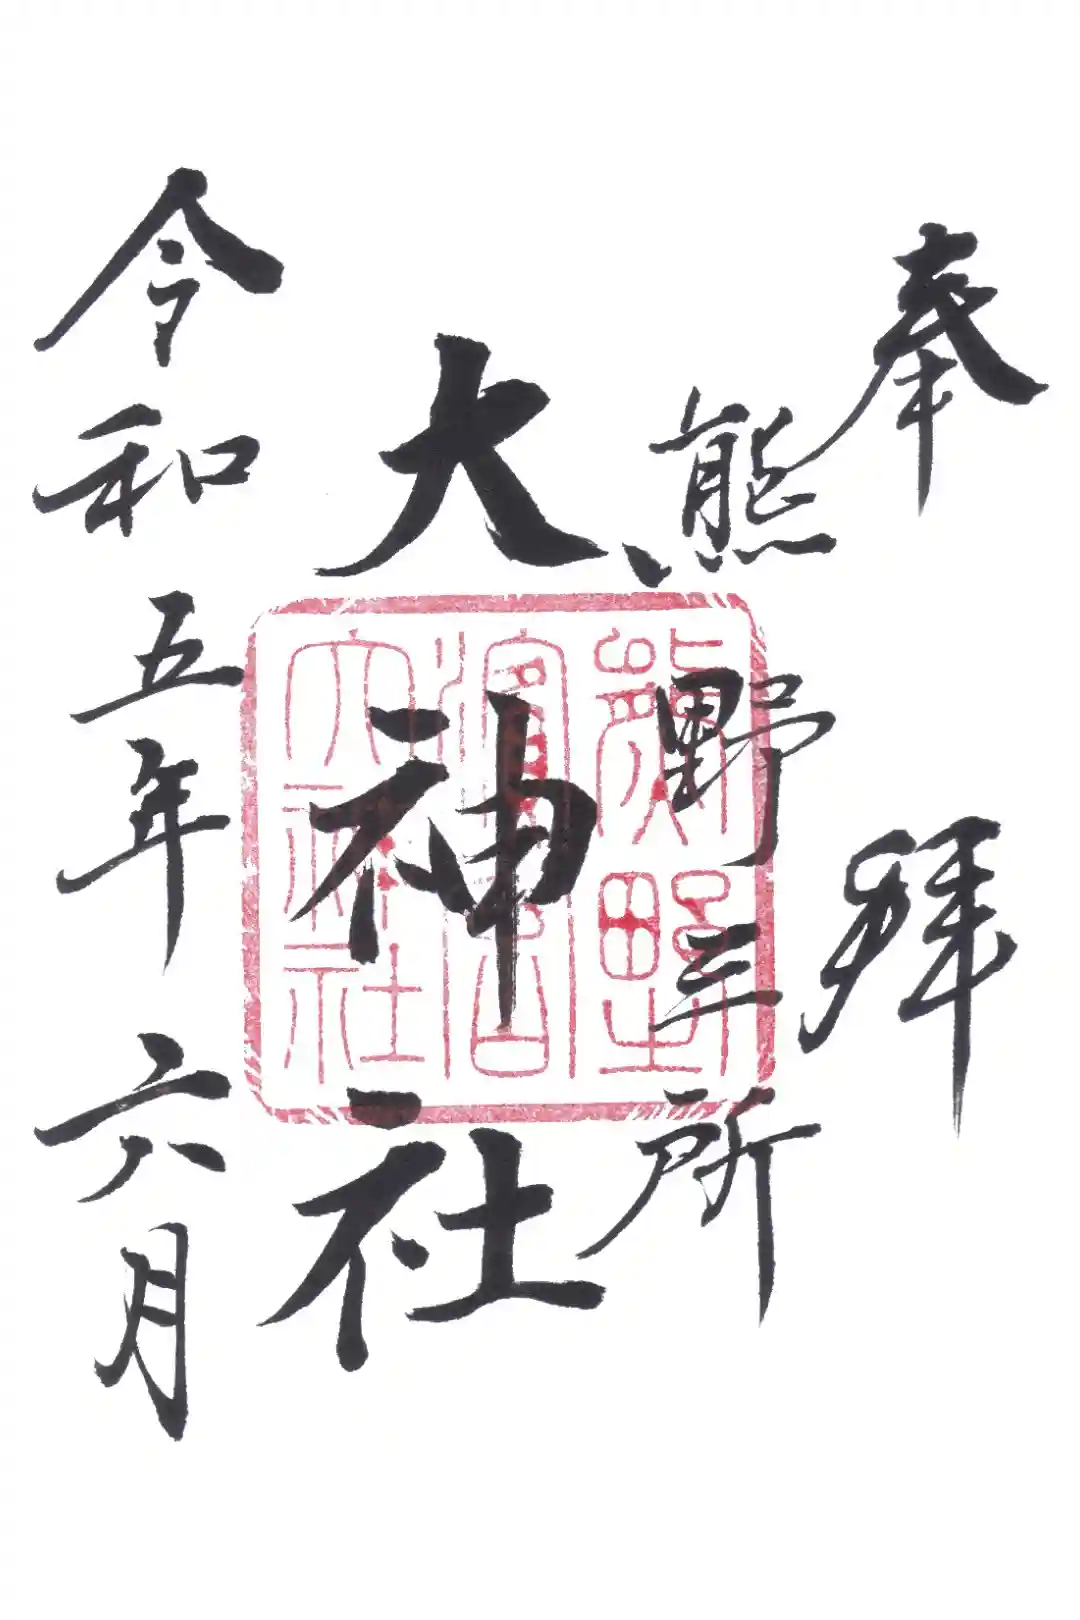 奉拝
熊野三所
大神社
令和五年六月
熊野
濱宮
大神社